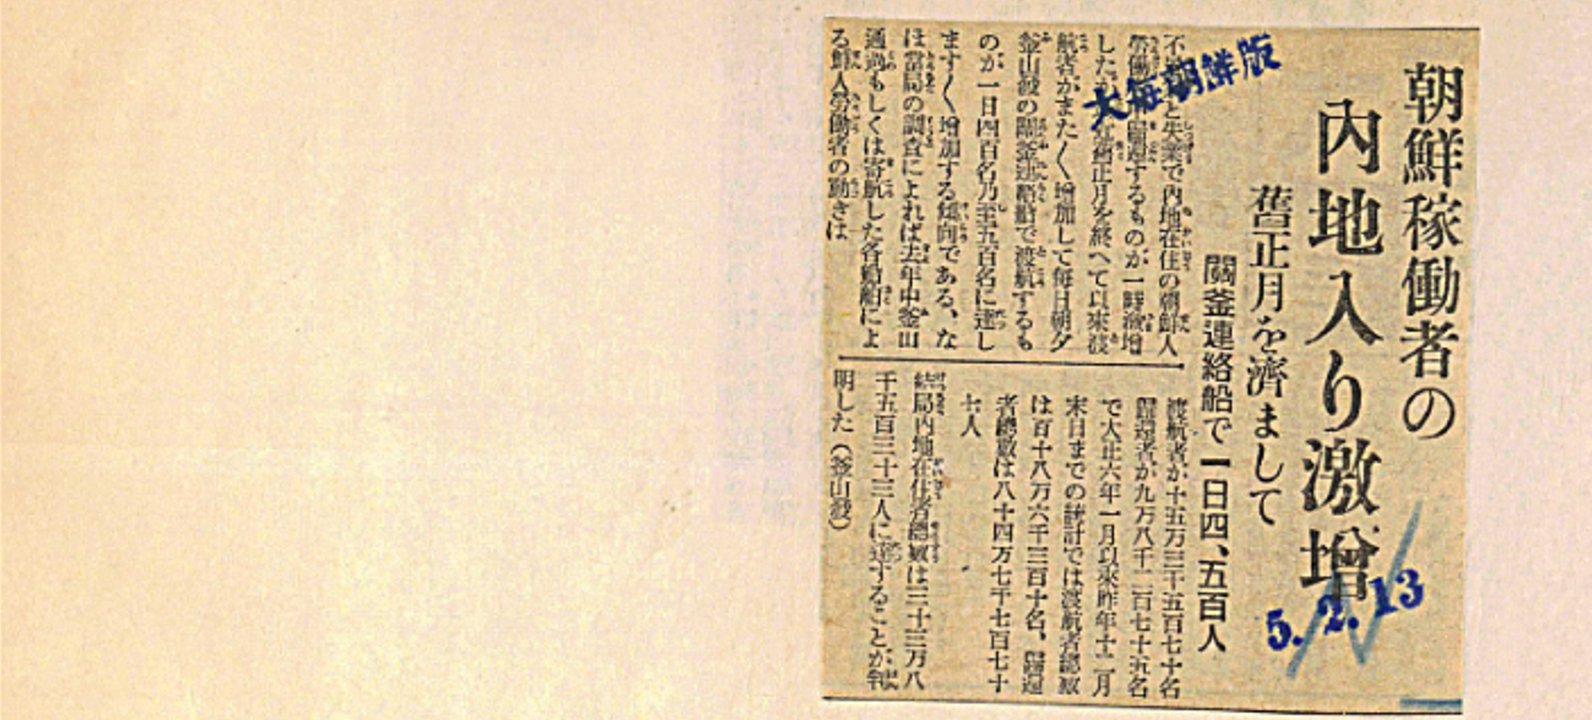 朝鮮稼働者の
内地入り激増
舊正月を濟まして
關釜連絡船で一日四、五百人
大每朝鮮版
5.2.13
と失業で內地在住の朝鮮人
勞働 するものが一時激增
した 舊正月を終へて以來渡
航者がまた〱增加して每日朝夕
釜山發の關釜連絡船で渡航するも
のが一日四百名乃至五百名に達し
ます〱增加する傾向である、な
ほ當局の調査によれば去年中釜山
通過もしくは寄航した各船舶によ
る鮮人勞働者の動きは
渡航者が十五万三千五百七十名
歸還者が九万八千二百七十五名
で大正六年一月以來昨年十二月
末日までの統計では渡航者總數
は百十八万六千三百十名、歸還
者總數は八十四万七千七百七十
七人
結局內地在住者總數は三十三万八
千五百三十三人に達することが判
明した（釜山發）